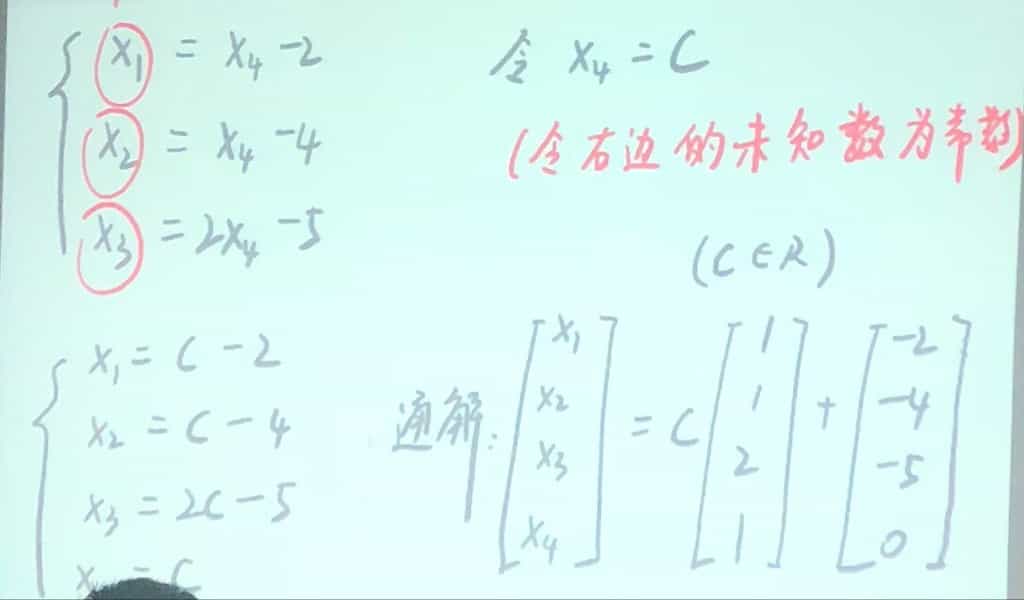 x₁ = x₄ -2
x₂ = x₄ -4
x₃ = 2x₄ -5
令 x₄ = C
(令右边的未知数为常数)
(C∈R)
x₁ = C - 2
x₂ = C - 4
x₃ = 2C - 5
x = C
通解: [x₁ x₂ x₃ x₄] = C [1 1 2 1] + [-2 -4 -5 0]